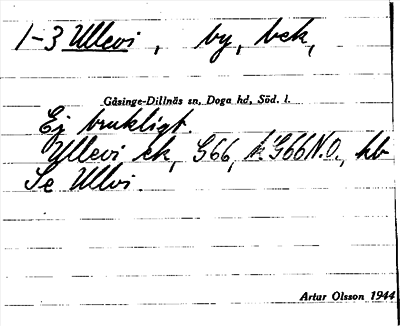 1-3 Ullevi, by, bek,
Gåsinge-Dillnäs sn, Daga hd, Söd. l.
Ej brukligt.
Ullevi ek, G66, k G66 N.O., hb
Se Ullvi.
Artur Olsson 1944